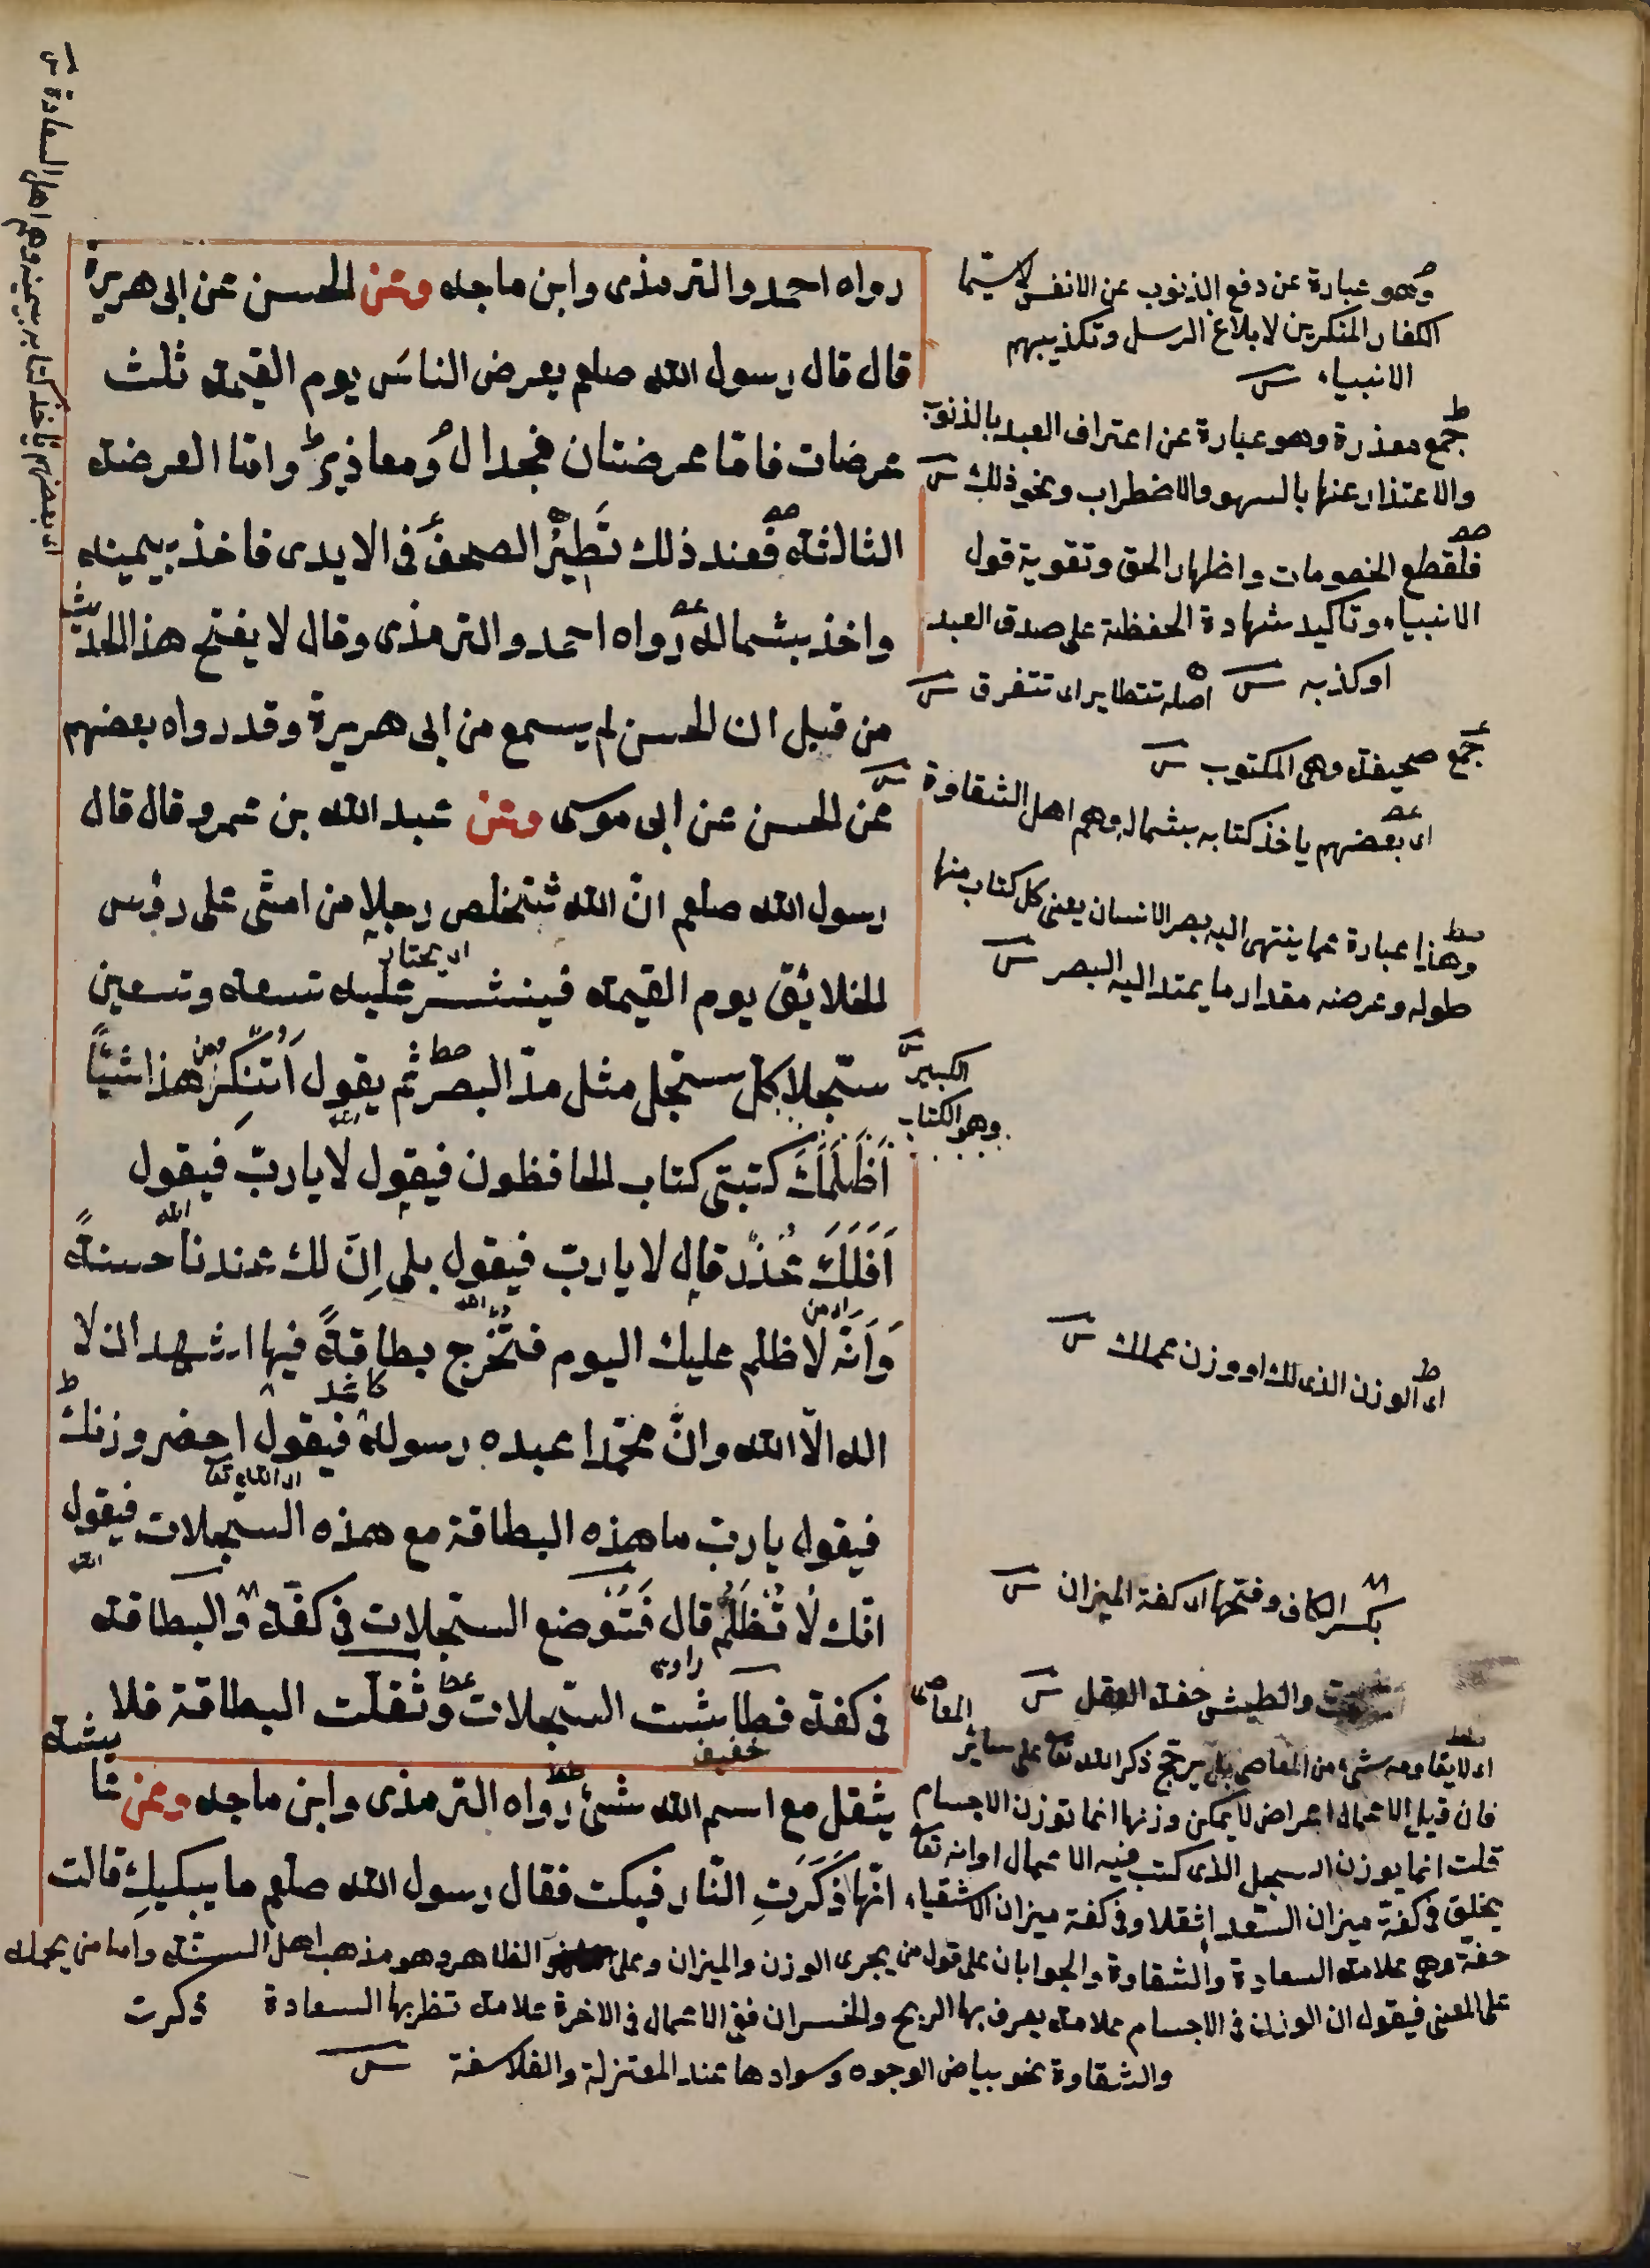 رواه احمد والترمذى وابن ماجه وعن الحسن عن ابى هريرة
قال قال رسول الله صلعم يعرض الناس يوم القيمة ثلث
عرضات فامّا عرضتان فجدال ومعاذير وامّا العرضة
الثالثة فعند ذلك تطيّر الصحف فى الايدى فاخذ بيمينه
واخذ بشماله رواه احمد والترمذى وقال لا يفتح هذا الحديث
من قبل ان الحسن لم يسمع من ابى هريرة وقد رواه بعضهم
عن الحسن عن ابى موسى وعن عبد الله بن عمرو قال قال
رسول الله صلعم انّ الله ستخلص رجلا من امتى على رؤس
اى يختار
الخلائق يوم القيمة فينشر عليه تسعة وتسعين
سجلا كل سجل مثل مدّ البصر ثم يقول اَتُنكِرُ من هذا شيئًا
اَظَلَمَكَ كتبتى كتاب الحافظون فيقول لا يا ربّ فيقول
الله
اَفَلَكَ عُذْر قال لا يا ربّ فيقول بلى اِنّ لك عندنا حسنةً
وَاَنّه لا ظلم عليك اليوم فتُخْرج بطاقةً فيها اشهد ان لا
كاغد
اله الّا الله وانّ محمّدا عبده رسوله فيقول احضر وزنك
اى الله تعا
فيقول يا ربّ ما هذه البطاقة مع هذه السجلات فيقول
الله
انّك لا تُظْلَمُ قال فَتُوضع السجلات فى كفّة والبطاقة
راوى
فى كفة فطاشت السّجلات وثقلت البطاقة فلا
خفيف
يثقل مع اسم الله شئ رواه الترمذى وابن ماجه وعن عايشة
انّها ذَكَرَتِ النّار فبكت فقال رسول الله صلعم ما يبكيكِ قالت
ذكرت
وهو عبارة عن دفع الذنوب عن الانفس لا سيّما
الكفار المنكرين لابلاغ الرسل وتكذيبهم
الانبياء
جمع معذرة وهو عبارة عن اعتراف العبد بالذنوب
والاعتذار عنها بالسهو والاضطراب ونحو ذلك
فلقطع الخصومات واظهار الحق وتقوية قول
الانبياء وتاكيد شهادة الحفظة على صدق العبد
او كذبه
اصله تتطاير اى تتفرق
جمع صحيفة وهى المكتوب
اى بعضهم ياخذ كتابه بشماله وهم اهل الشقاوة
وهذا عبارة عما ينتهى اليه بصر الانسان يعنى كل كتاب منها
طوله وعرضه مقدار ما يمتد اليه البصر
وهو الكتاب
الكبير
اى الوزن الذى لك او وزن عملك
بكسر الكاف وفتحها اى كفة الميزان
والطيش خفة العقل
اى لا يقاومه شئ من المعاصى بل يرجح ذكر الله تعا على سائر
المعاصى
فان قيل الاعمال اعراض لا يمكن وزنها انما توزن الاجسام
قلت انما يوزن السجل الذى كتب فيه الاعمال او انه تعا
يخلق فى كفّة ميزان السّعداء ثقلا وفى كفة ميزان الاشقياء
خفّة وهى علامة السعادة والشقاوة والجوابان على قول من يجرى الوزن والميزان وعلى الظاهر وهو مذهب اهل السنة واما من يحمله
على المعنى فيقول ان الوزن فى الاجسام علامة يعرف بها الربح والخسران ففى الاعمال فى الاخرة علامة تظر بها السعادة
والشقاوة نحو بياض الوجوه وسوادها عند المعتزلة والفلاسفة
اى بعضهم ياخذ كتابه بيمينه وهم اهل السعادة